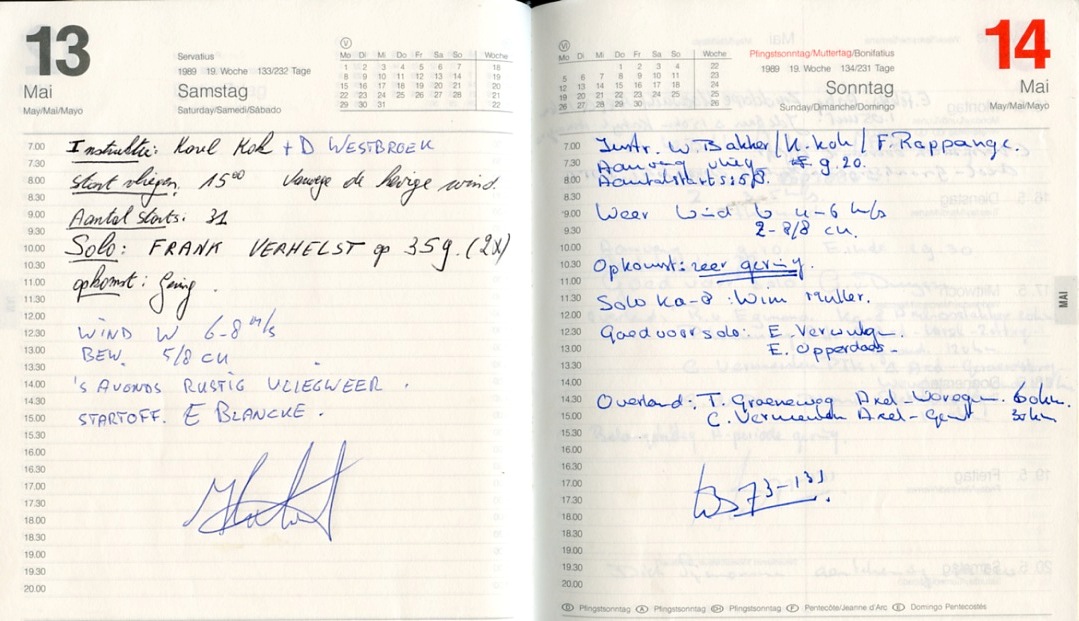 13
Mai
May/Mai/Mayo
Servatius
1989 19. Woche 133/232 Tage
Samstag
Saturday/Samedi/Sábado
V
Mo Di Mi Do Fr Sa So Woche
1 2 3 4 5 6 7 18
8 9 10 11 12 13 14 19
15 16 17 18 19 20 21 20
22 23 24 25 26 27 28 21
29 30 31 22
7.00 Instruktie: Karel Kok + D WESTBROEK
7.30
8.00 start vliegen. 15⁰⁰ vanwege de hevige wind.
8.30
9.00 Aantal starts: 31
9.30
10.00 Solo: FRANK VERHELST op 35g. (2x)
10.30
11.00 opkomst: Gering.
11.30
12.00
12.30 WIND W 6-8 m/s
13.00 BEW. 5/8 CU
13.30
14.00 'S AVONDS RUSTIG VLIEGWEER.
14.30
15.00 STARTOFF. E BLANCKE.
15.30
16.00
16.30
17.00
17.30
18.00
18.30
19.00
19.30
20.00
VI
Mo Di Mi Do Fr Sa So Woche
1 2 3 4 22
5 6 7 8 9 10 11 23
12 13 14 15 16 17 18 24
19 20 21 22 23 24 25 25
26 27 28 29 30 26
Pfingstsonntag/Muttertag/Bonifatius
1989 19. Woche 134/231 Tage
Sonntag
Sunday/Dimanche/Domingo
14
Mai
May/Mai/Mayo
7.00 Instr. W. Bakker / K. Kok / F. Rappange.
7.30 Aanvang vlieg 9.20.
8.00 Aantal starts:
8.30
9.00 Weer Wind W 4-6 m/s
9.30 2-8/8 cu.
10.00
10.30 Opkomst: zeer gering.
11.00
11.30 Solo Ka-8: Wim Muller.
12.00
12.30 Goed voor solo: E.
13.00 E. Opperdoes
13.30
14.00
14.30 Overland: T. Groeneweg Axel- 60 km.
15.00 C. Vermeulen Axel-Gent 30 km
15.30
16.00
16.30
17.00 73-131
17.30
18.00
18.30
19.00
19.30
20.00
MAI
D Pfingstsonntag A Pfingstsonntag CH Pfingstsonntag F Pentecôte/Jeanne d'Arc E Domingo Pentecostés